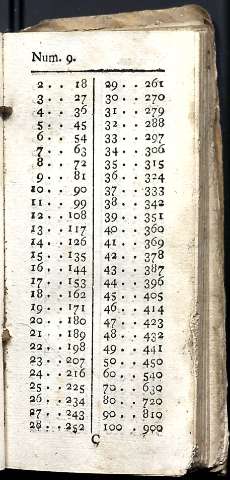 Num. 9.
2 . . 18 29 . . 261
3 . . 27 30 . . 270
4 . . 36 31 . . 279
5 . . 45 32 . . 288
6 . . 54 33 . . 297
7 . . 63 34 . . 306
8 . . 72 35 . . 315
9 . . 81 36 . . 324
10 . . 90 37 . . 333
11 . . 99 38 . . 342
12 . . 108 39 . . 351
13 . . 117 40 . . 360
14 . . 126 41 . . 369
15 . . 135 42 . . 378
16 . . 144 43 . . 387
17 . . 153 44 . . 396
18 . . 162 45 . . 405
19 . . 171 46 . . 414
20 . . 180 47 . . 423
21 . . 189 48 . . 432
22 . . 198 49 . . 441
23 . . 207 50 . . 450
24 . . 216 60 . . 540
25 . . 225 70 . . 630
26 . . 234 80 . . 720
27 . . 243 90 . . 810
28 . . 252 100 . . 900
C